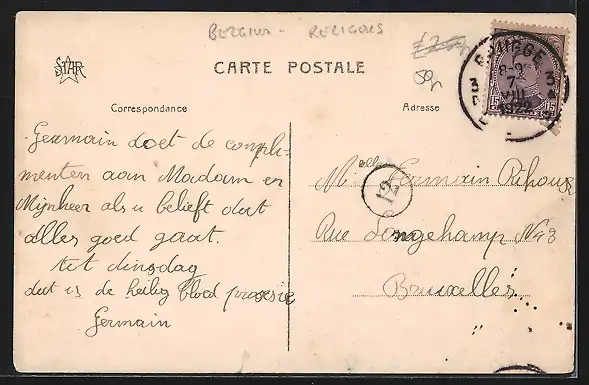 BELGIUM - RELIGOUS
£2
50p
STAR
CARTE POSTALE
Correspondance
Adresse
BRUGGE
3 8-9 3
7
VIII
1922
15 15
Germain doet de compli-
menten aan Madam en
Mijnheer als u belieft dat
alles goed gaat.
tot dinsdag
dat is de heilig bloed processie
Germain
Melle Germain
12
Rue Longchamp No 3
Bruxelles